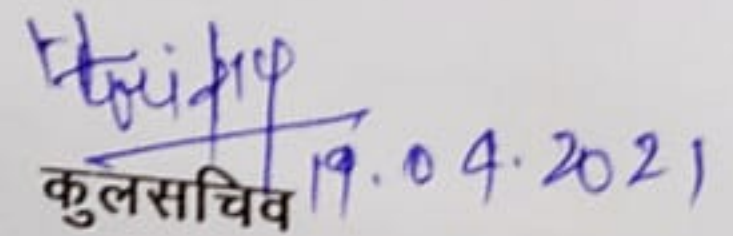 कुलसचिव 19.04.2021